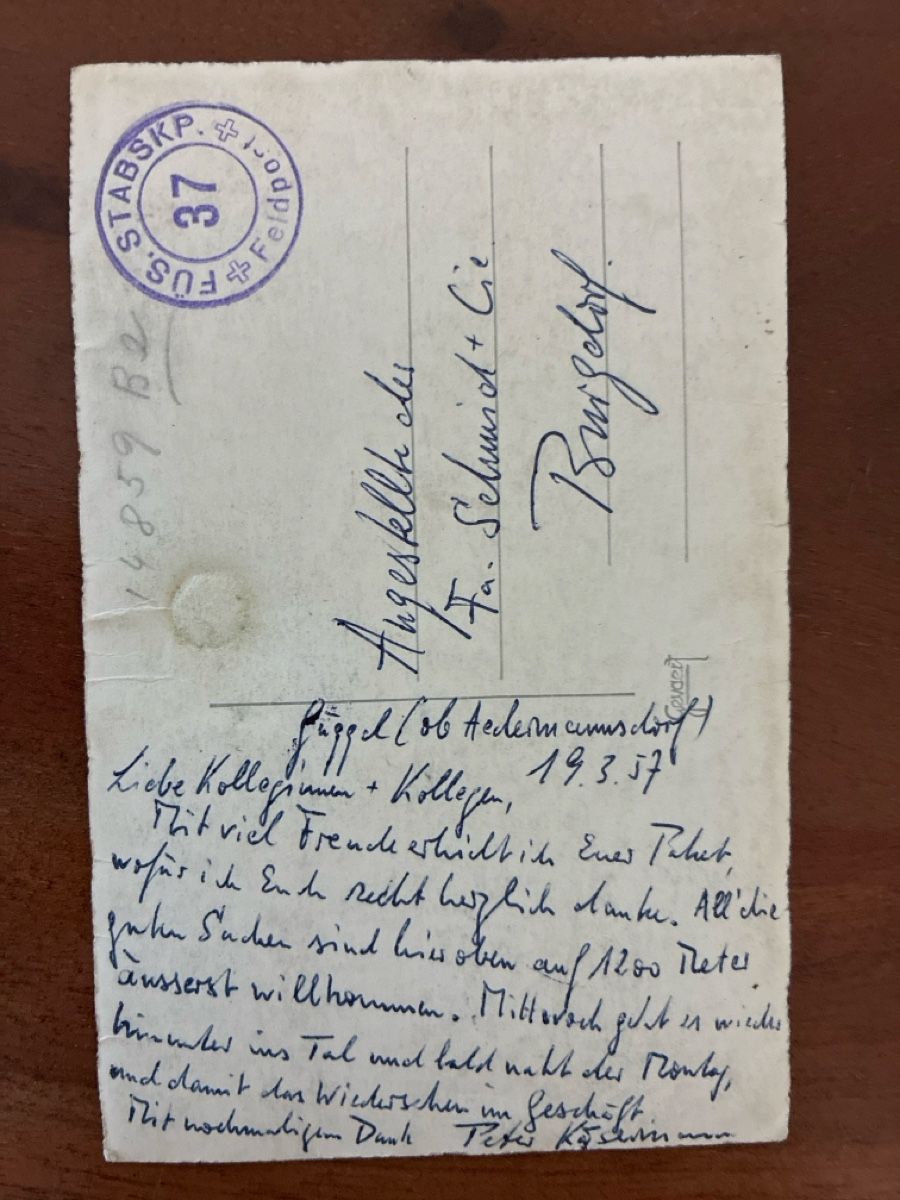 FÜS. STABSKP. 37
Feldpost
14859 Be
Angestellte der
Fa. Schmid + Cie
Burgdorf.
Güggel (ob Aedermannsdorf)
19.3.57
Liebe Kolleginnen + Kollegen,
Mit viel Freude erhielt ich Euer Paket,
wofür ich Euch recht herzlich danke. All' die
guten Sachen sind hier oben auf 1200 Meter
äusserst willkommen. Mittwoch geht es wieder
hinunter ins Tal und bald naht der Montag,
und damit das Wiedersehen im Geschäft.
Mit nochmaligem Dank Peter Käsermann